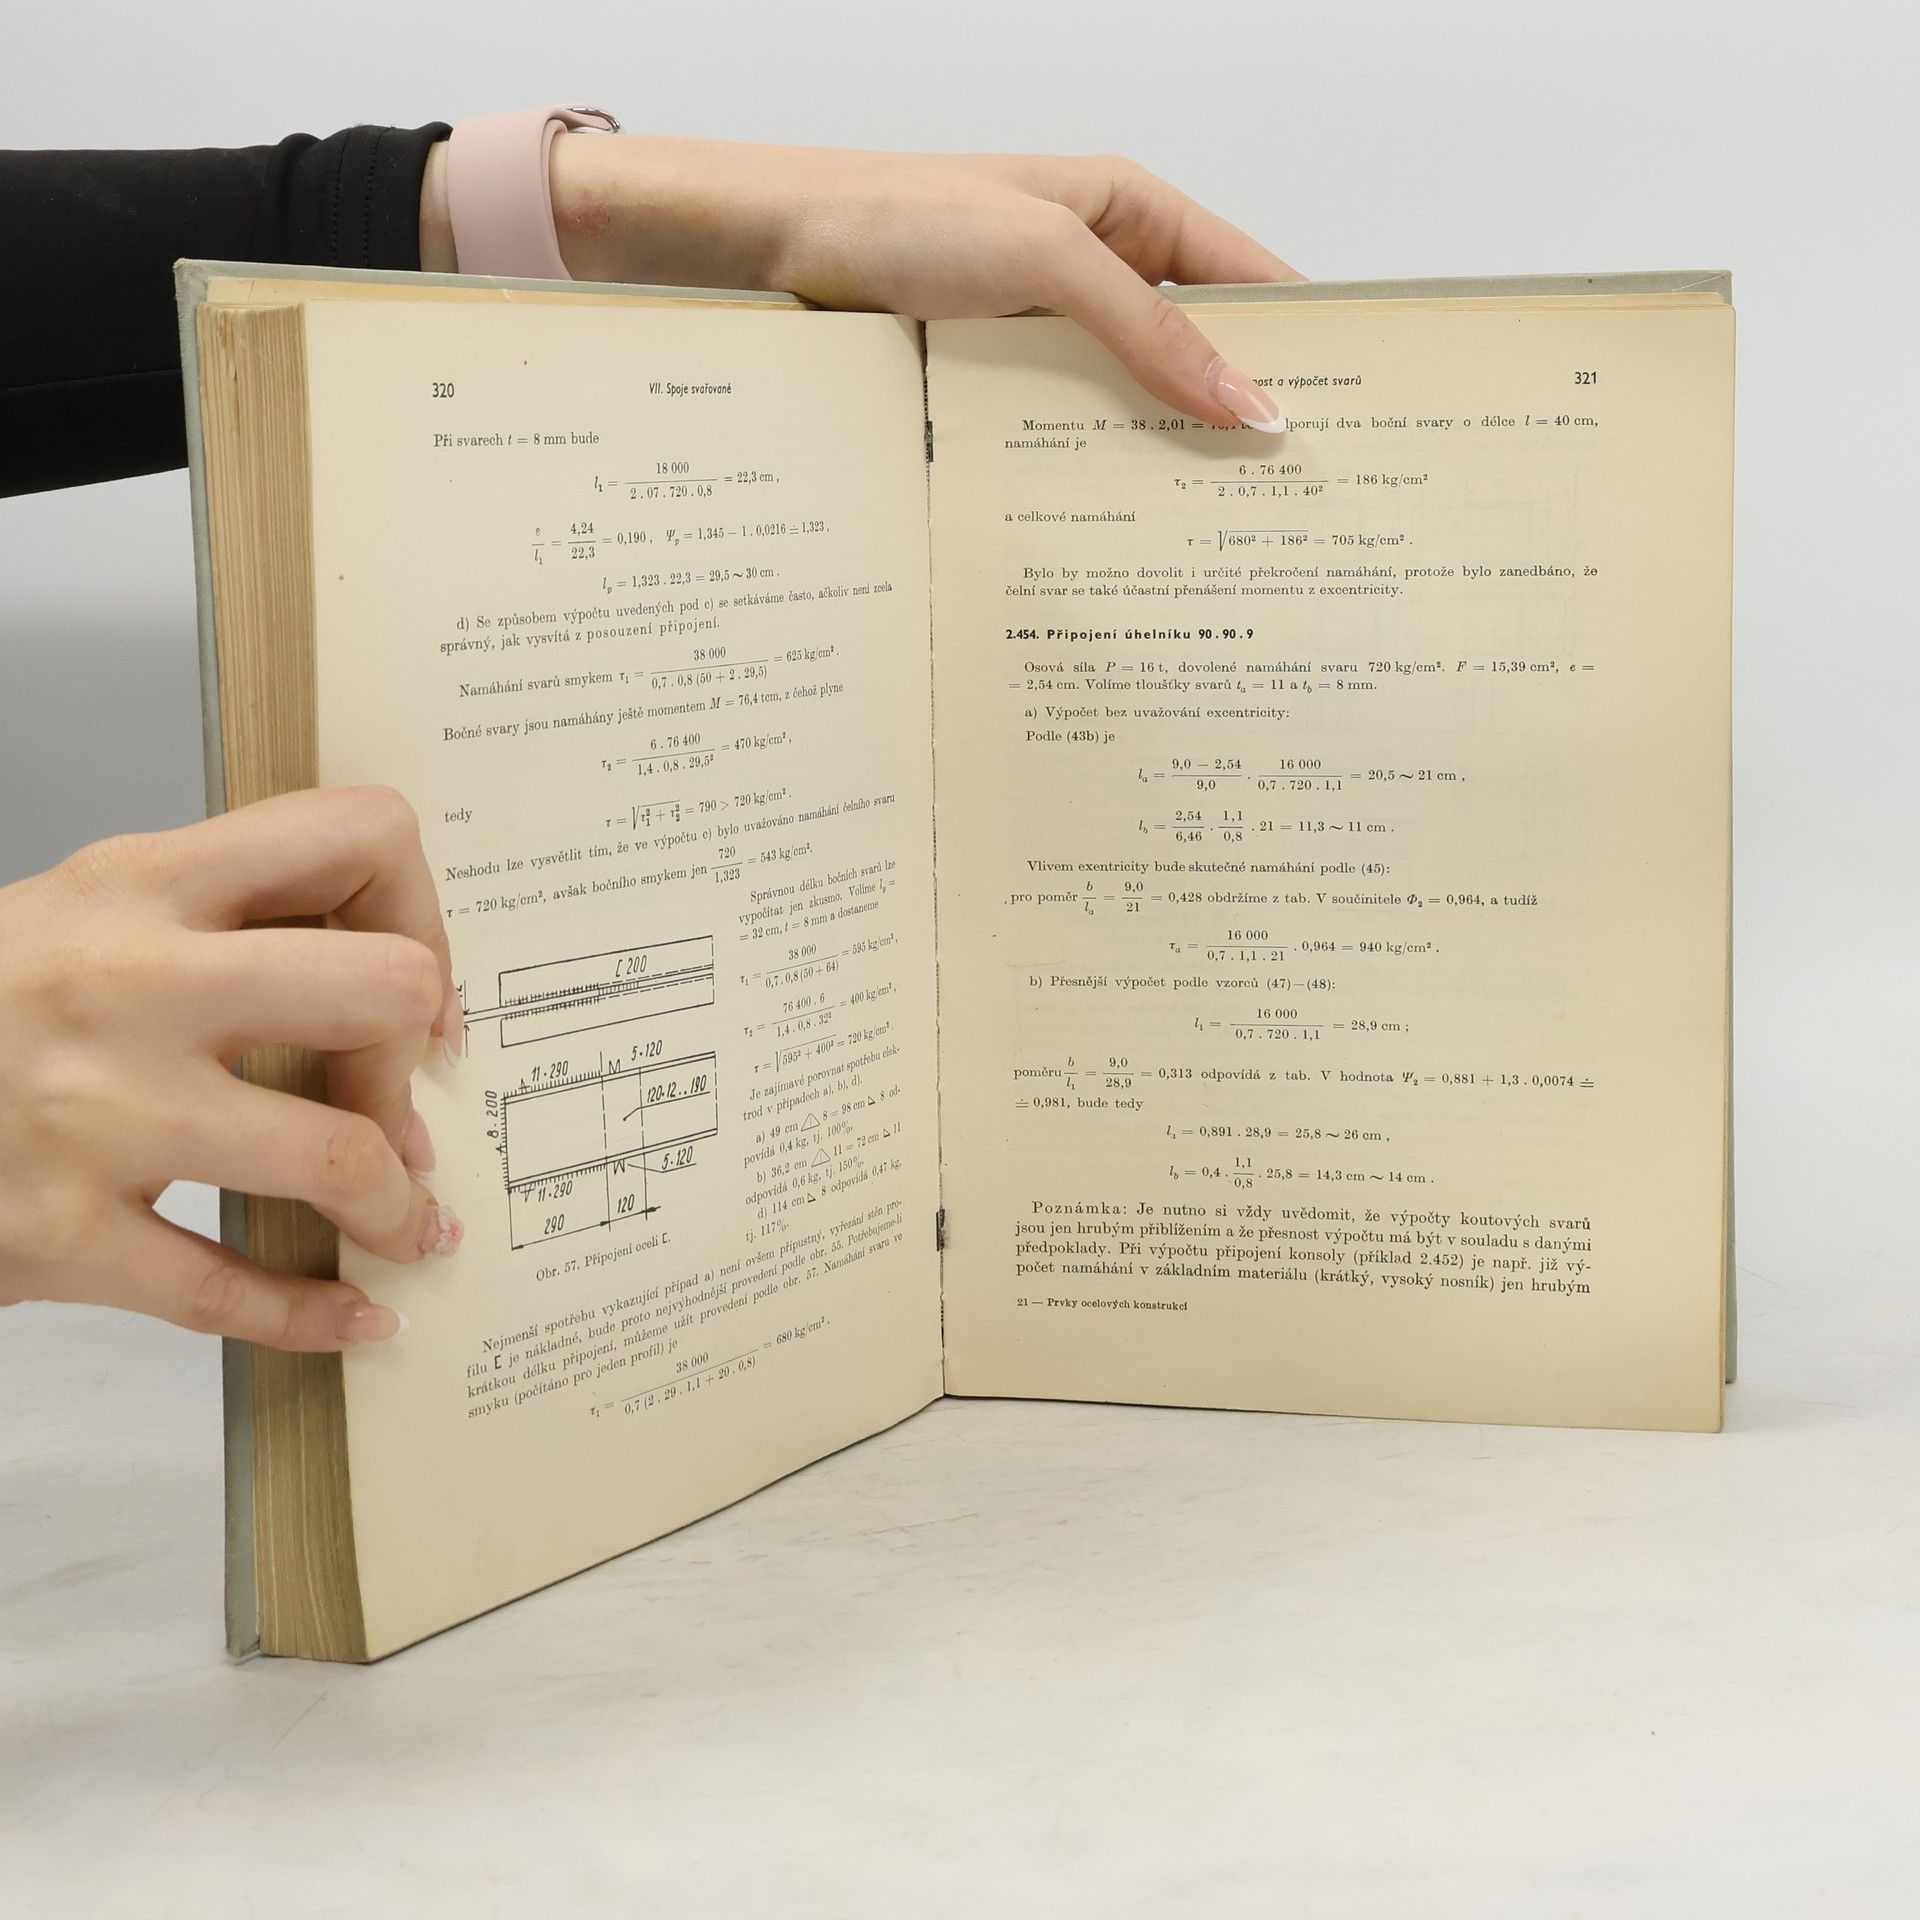 320 VII. Spoje svařované
Při svarech t = 8 mm bude
l₁ = 18 000 / 2 . 07 . 720 . 0,8 = 22,3 cm ,
e / l₁ = 4,24 / 22,3 = 0,190 , Ψₚ = 1,345 − 1 . 0,0216 ≐ 1,323 ,
lₚ = 1,323 . 22,3 = 29,5 ~ 30 cm .
d) Se způsobem výpočtu uvedených pod c) se setkáváme často, ačkoliv není zcela
správný, jak vysvítá z posouzení připojení.
Namáhání svarů smykem τ₁ = 38 000 / 0,7 . 0,8 (50 + 2 . 29,5) = 625 kg/cm² .
Bočné svary jsou namáhány ještě momentem M = 76,4 tcm, z čehož plyne
τ₂ = 6 . 76 400 / 1,4 . 0,8 . 29,5² = 470 kg/cm² ,
tedy τ = √τ₁² + τ₂² = 790 > 720 kg/cm² .
Neshodu lze vysvětlit tím, že ve výpočtu c) bylo uvažováno namáhání čelního svaru
τ = 720 kg/cm², avšak bočního smykem jen 720 / 1,323 = 543 kg/cm².
Správnou délku bočních svarů lze
vypočítat jen zkusmo. Volíme lₚ =
= 32 cm, t = 8 mm a dostaneme
τ₁ = 38 000 / 0,7 . 0,8 (50 + 64) = 595 kg/cm² ,
τ₂ = 76 400 . 6 / 1,4 . 0,8 . 32² = 400 kg/cm² ,
τ = √595² + 400² = 720 kg/cm² .
Je zajímavé porovnat spotřebu elek-
trod v případech a), b), d).
a) 49 cm △ 8 = 98 cm ⊿ 8 od-
povídá 0,4 kg, tj. 100%,
b) 36,2 cm △ 11 = 72 cm ⊿ 11
odpovídá 0,6 kg, tj. 150%,
d) 114 cm ⊿ 8 odpovídá 0,47 kg,
tj. 117%.
[ 200
11·290
5·120
120·12..190
8·200
5·120
11·290
120
290
Obr. 57. Připojení oceli [.
Nejmenší spotřebu vykazující případ a) není ovšem přípustný, vyřezání stěn pro-
filu [ je nákladné, bude proto nejvýhodnější provedení podle obr. 55. Potřebujeme-li
krátkou délku připojení, můžeme užít provedení podle obr. 57. Namáhání svaru ve
smyku (počítáno pro jeden profil) je
τ₁ = 38 000 / 0,7 (2 . 29 . 1,1 + 20 . 0,8) = 680 kg/cm² .
a výpočet svarů 321
Momentu M = 38 . 2,01 = dva boční svary o délce l = 40 cm,
namáhání je
τ₂ = 6 . 76 400 / 2 . 0,7 . 1,1 . 40² = 186 kg/cm²
a celkové namáhání
τ = √680² + 186² = 705 kg/cm² .
Bylo by možno dovolit i určité překročení namáhání, protože bylo zanedbáno, že
čelní svar se také účastní přenášení momentu z excentricity.
2.454. Připojení úhelníku 90 . 90 . 9
Osová síla P = 16 t, dovolené namáhání svaru 720 kg/cm². F = 15,39 cm², e =
= 2,54 cm. Volíme tloušťky svarů tₐ = 11 a t_b = 8 mm.
a) Výpočet bez uvažování excentricity:
Podle (43b) je
lₐ = 9,0 − 2,54 / 9,0 . 16 000 / 0,7 . 720 . 1,1 = 20,5 ~ 21 cm ,
l_b = 2,54 / 6,46 . 1,1 / 0,8 . 21 = 11,3 ~ 11 cm .
Vlivem exentricity bude skutečné namáhání podle (45):
pro poměr b / lₐ = 9,0 / 21 = 0,428 obdržíme z tab. V součinitele Φ₂ = 0,964, a tudíž
τₐ = 16 000 / 0,7 . 1,1 . 21 . 0,964 = 940 kg/cm² .
b) Přesnější výpočet podle vzorců (47)—(48):
l₁ = 16 000 / 0,7 . 720 . 1,1 = 28,9 cm ;
poměru b / l₁ = 9,0 / 28,9 = 0,313 odpovídá z tab. V hodnota Ψ₂ = 0,881 + 1,3 . 0,0074 ≐
≐ 0,981, bude tedy
lₐ = 0,891 . 28,9 = 25,8 ~ 26 cm ,
l_b = 0,4 . 1,1 / 0,8 . 25,8 = 14,3 cm ~ 14 cm .
Poznámka: Je nutno si vždy uvědomit, že výpočty koutových svarů
jsou jen hrubým přiblížením a že přesnost výpočtu má být v souladu s danými
předpoklady. Při výpočtu připojení konsoly (příklad 2.452) je např. již vý-
počet namáhání v základním materiálu (krátký, vysoký nosník) jen hrubým
21 — Prvky ocelových konstrukcí